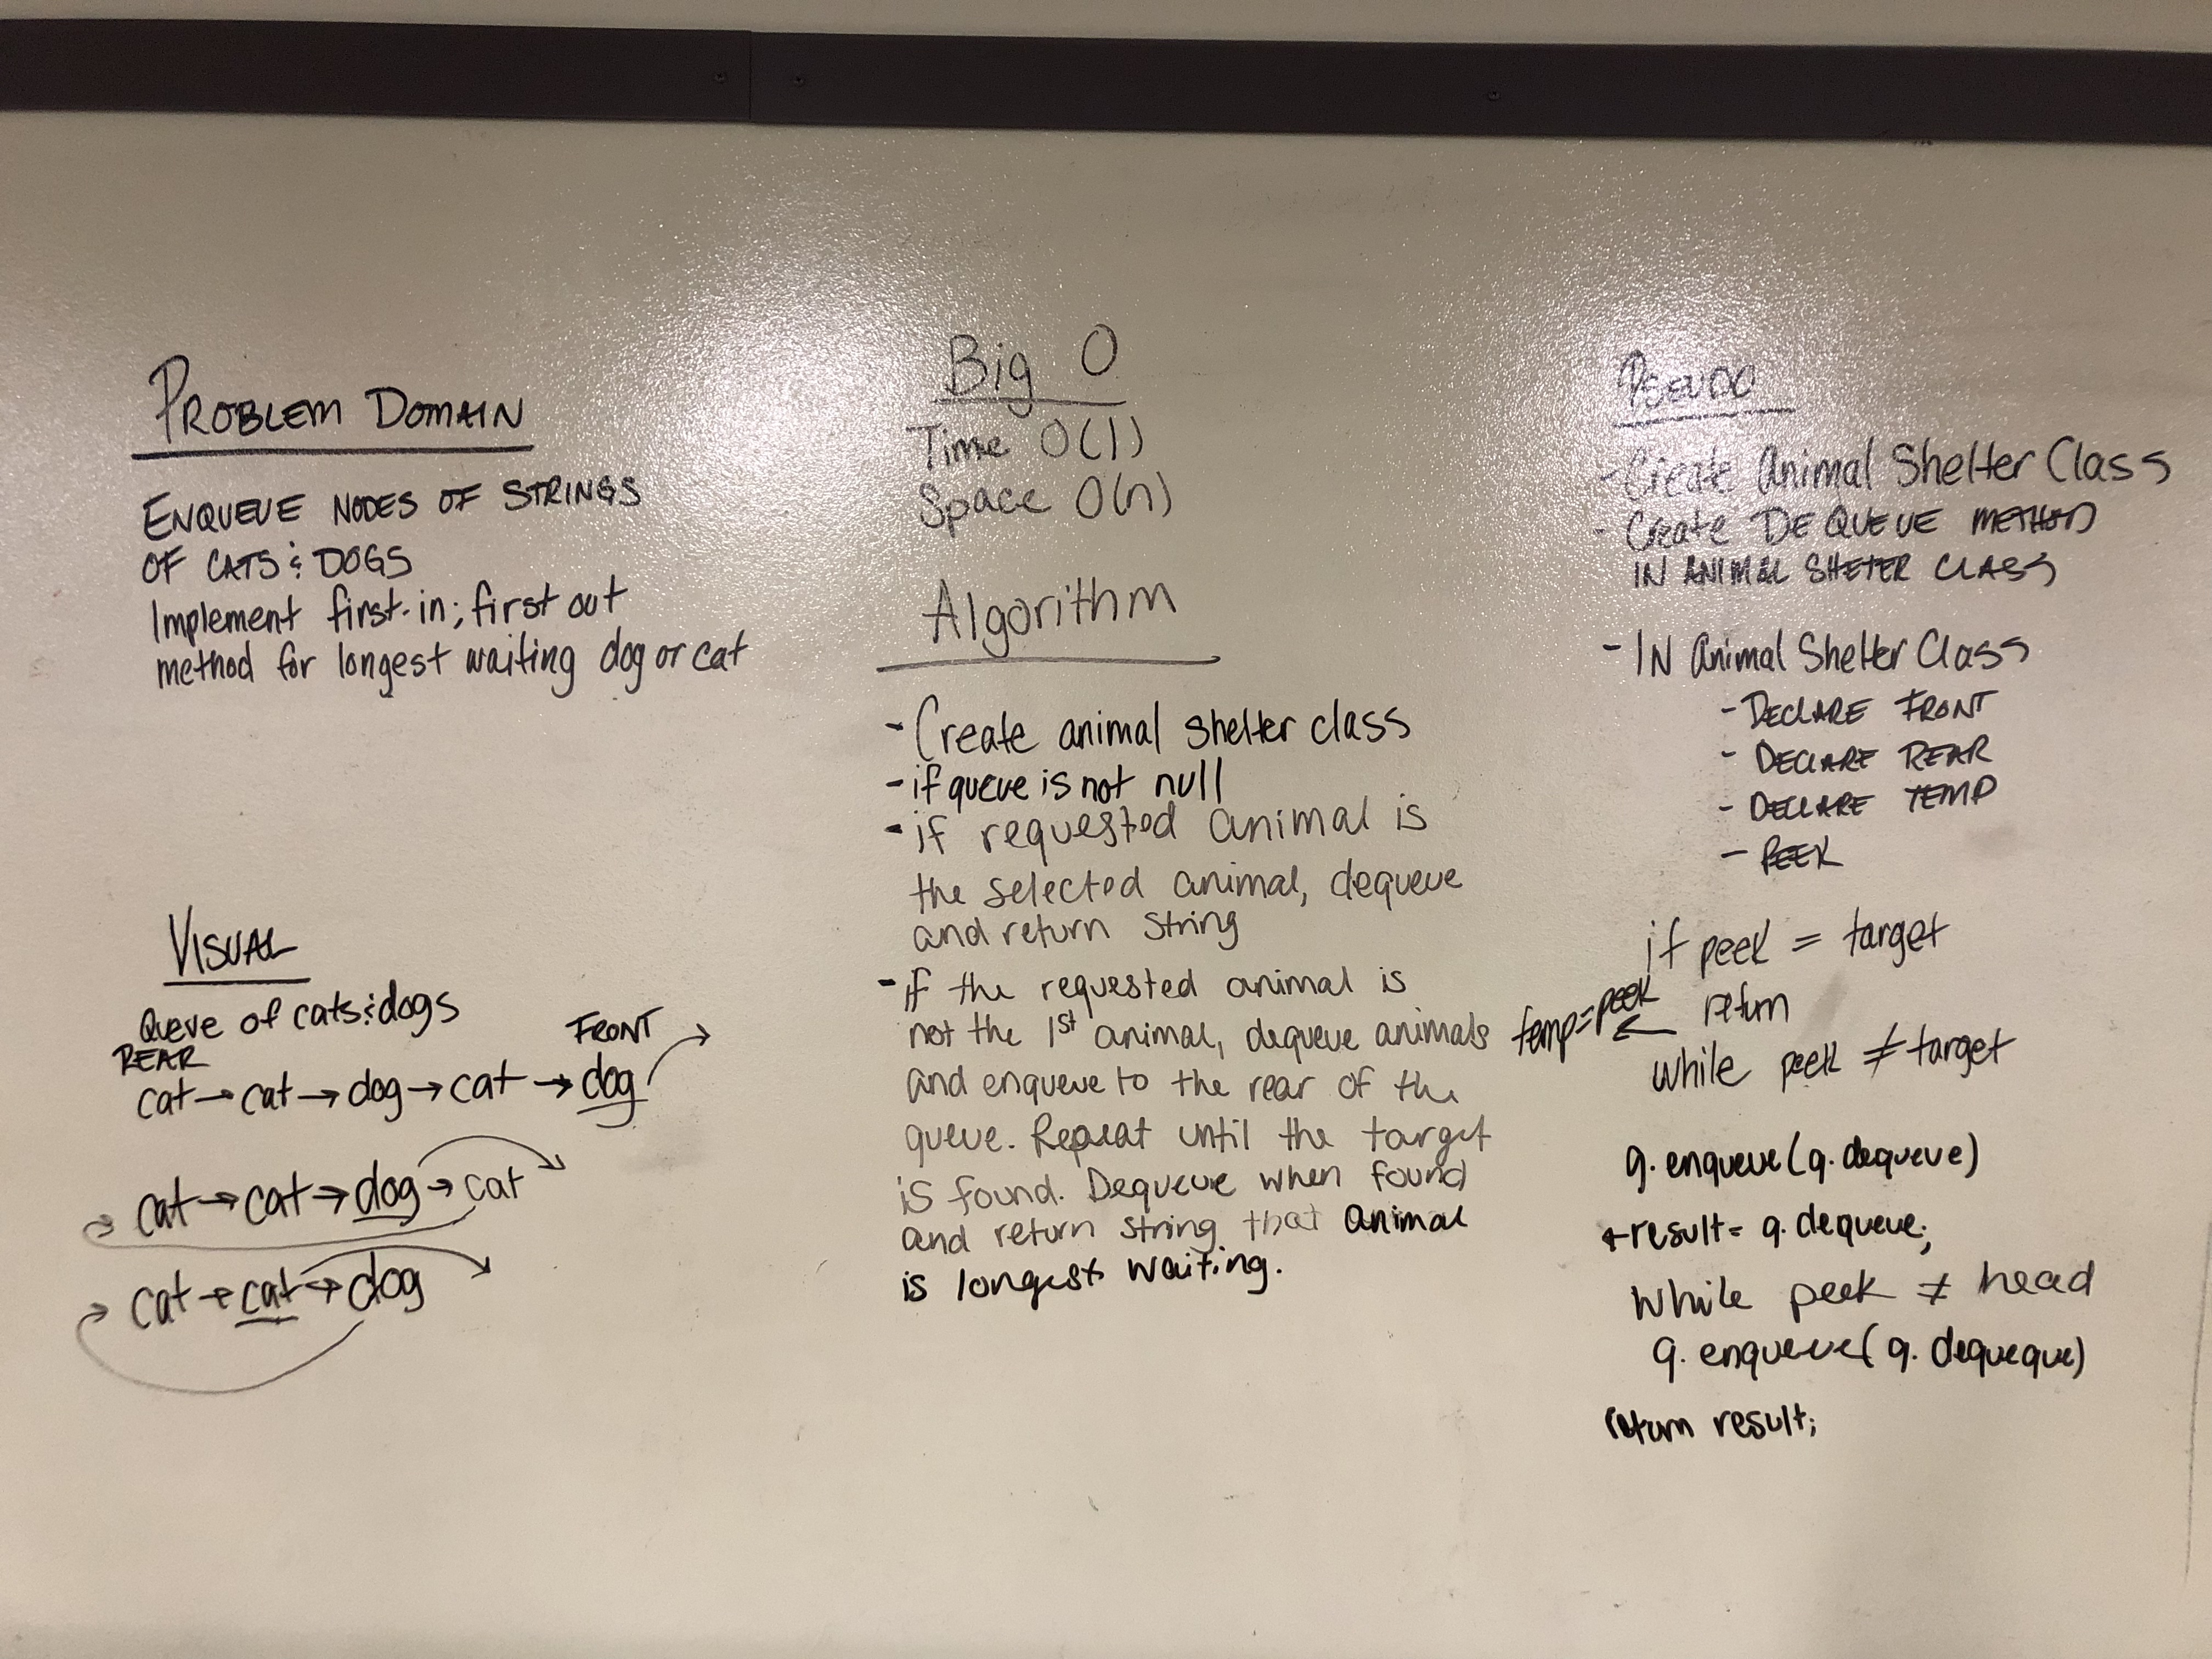 PROBLEM DOMAIN
ENQUEUE NODES OF STRINGS
OF CATS & DOGS
Implement first-in; first out
method for longest waiting dog or cat
VISUAL
Queve of cats & dogs
REAR FRONT
cat → cat → dog → cat → dog
cat → cat → dog → cat
cat → cat → dog
Big O
Time O(1)
Space O(n)
Algorithm
- Create animal shelter class
- if queue is not null
- if requested animal is
the selected animal, dequeue
and return string
- if the requested animal is
not the 1st animal, dequeue animals
and enqueue to the rear of the
queue. Repeat until the target
is found. Dequeue when found
and return string that animal
is longest waiting.
PSEUDO
- Create Animal Shelter Class
- Create DEQUEUE METHOD
IN ANIMAL SHETER CLASS
- IN Animal Shelter Class
- DECLARE FRONT
- DECLARE REAR
- DECLARE TEMP
- PEEK
if peek = target
temp = peek ← return
while peek ≠ target
q.enqueue(q.dequeue)
result = q.dequeue;
while peek ≠ head
q.enqueue(q.dequeque)
return result;